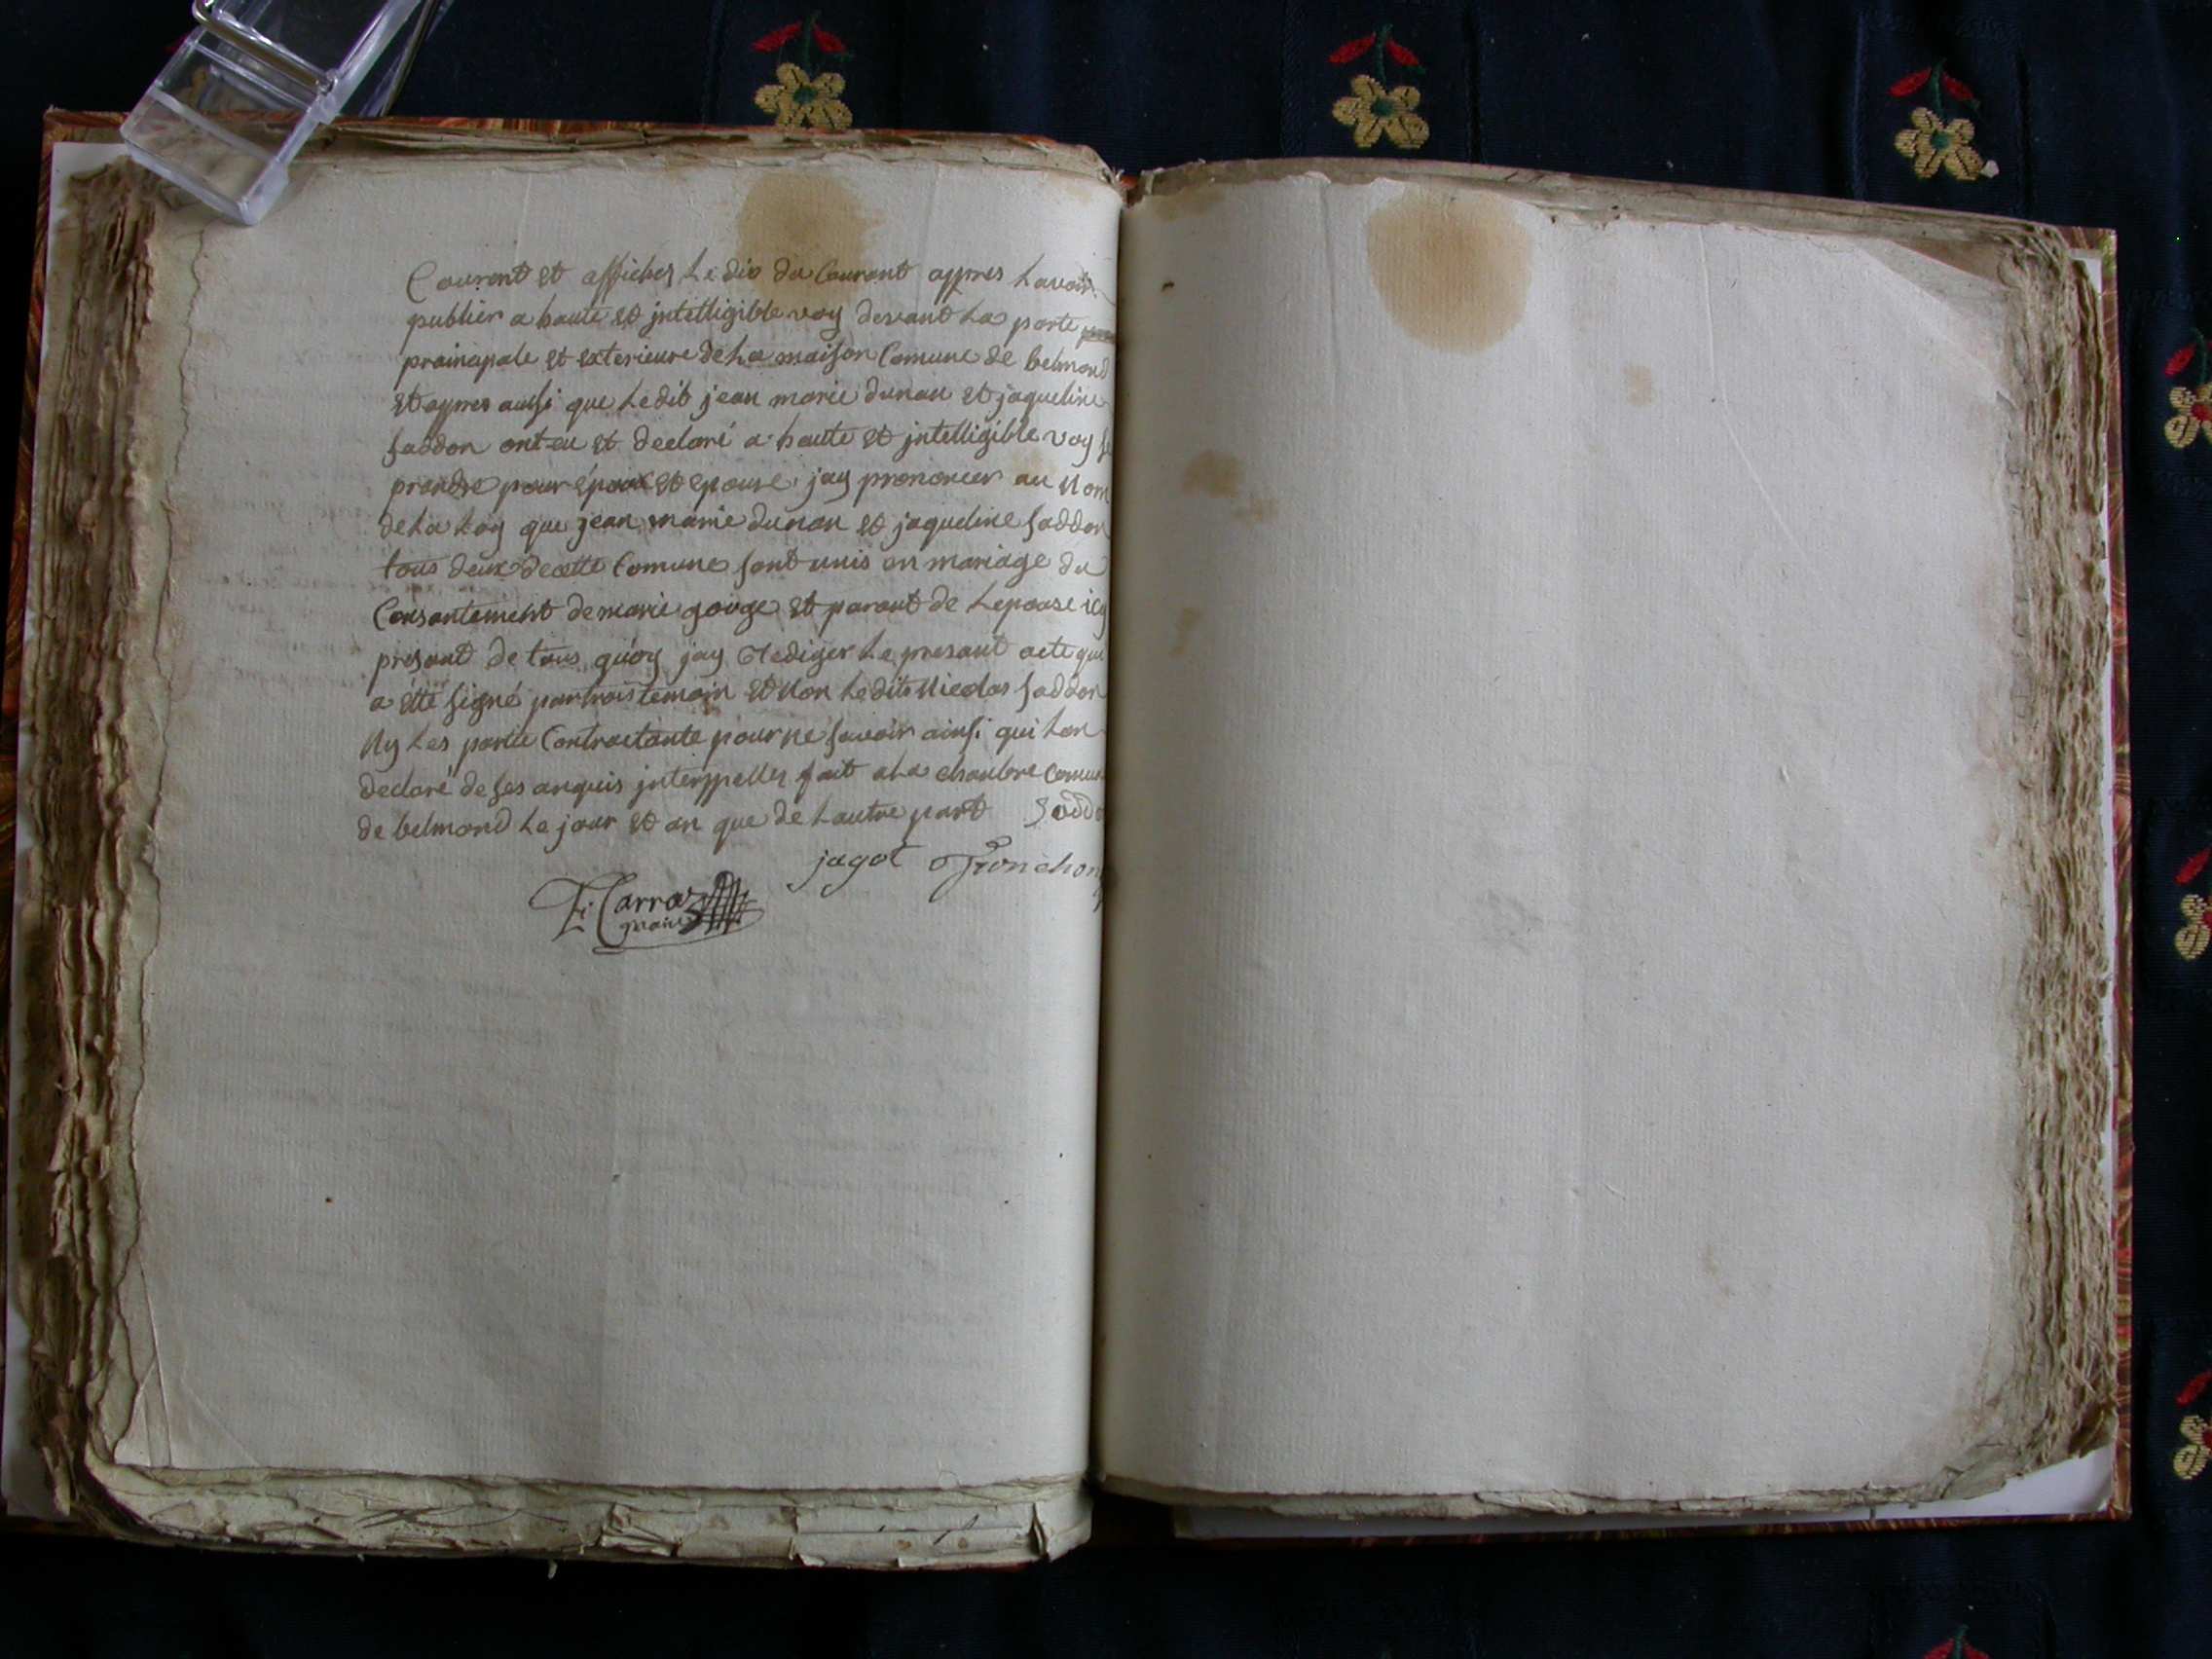 Courent et affiches Le dix du Courant appres Lavoir
publier a haute et jntelligible voy devant La porte
prainapale et exterieure de La maison Comune de belmond
et appres aussi que Ledit jean marie dunan et jaqueline
saddon ont eu et declaré a haute et jntelligible voy se
prandre pour époux et epouse, jay prononcer au Nom
de La Loy que jean marie dunan et jaqueline saddon
tous deux de cette Comune sont unis en mariage du
Consantement de marie gouge et parant de Lepouse icy
présant de tous quoy jay rediger Le presant acte qui
a étté signé par trois temoin et Non Ledits Nicolas saddon
Ny Les partie Contractante pour ne savoir ainsi qui Lon
declaré de ses anquis jnterppelles fait a La chanbre Comune
de belmond Le jour et an que de Lautre part Saddo
jagot Tronchon
Carra
maire